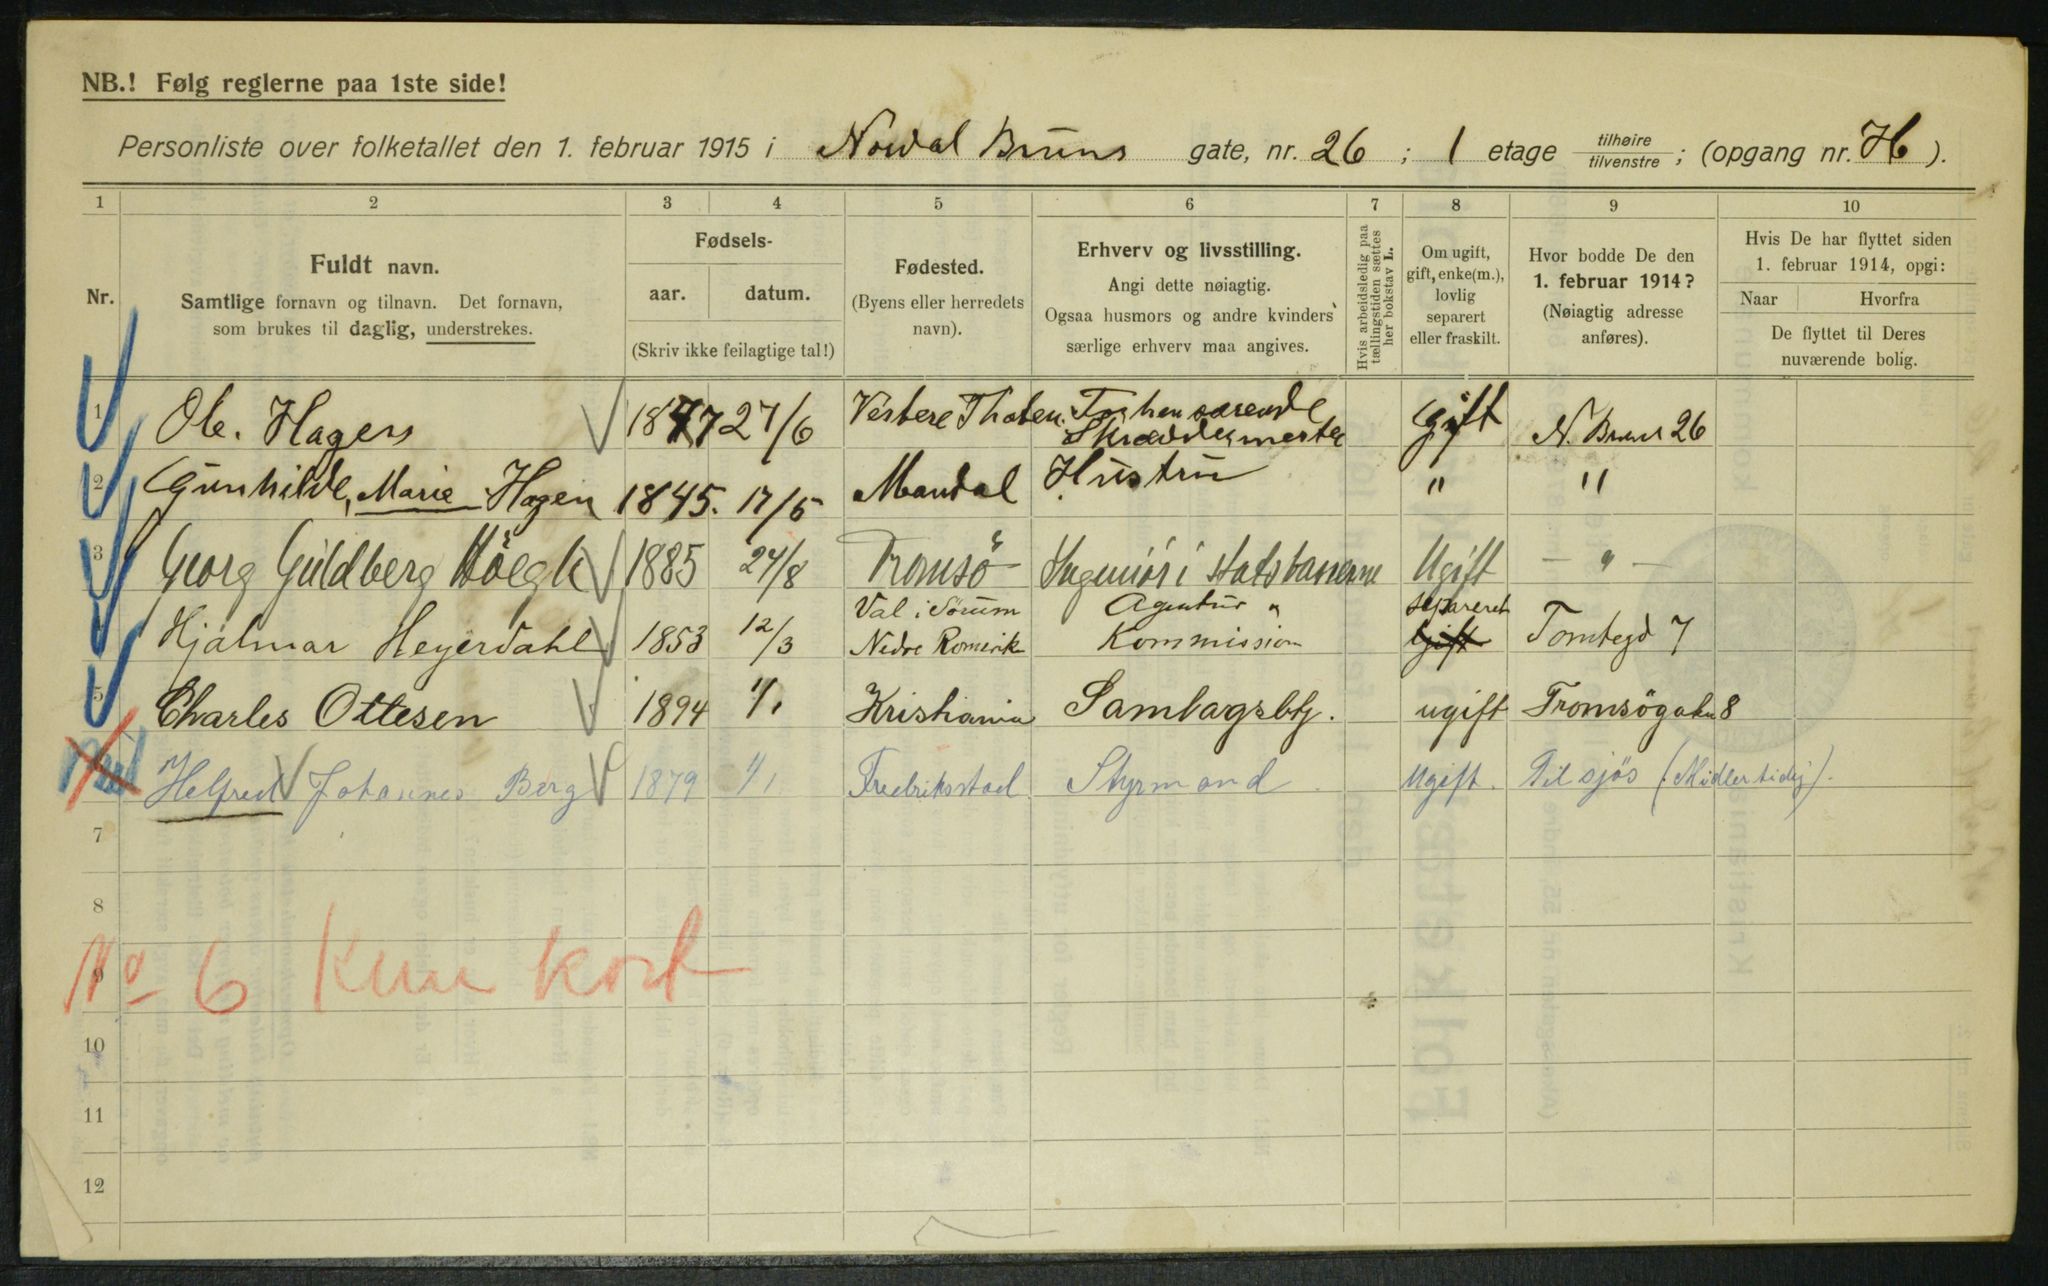 NB.! Følg reglerne paa 1ste side!
Personliste over folketallet den 1. februar 1915 i Nordal Bruns gate, nr. 26 ; 1 etage tilhøire tilvenstre ; (opgang nr. H ).
1 2 3 4 5 6 7 8 9 10
Nr.
Fuldt navn.
Samtlige fornavn og tilnavn. Det fornavn,
som brukes til daglig, understrekes.
Fødsels-
aar. datum.
(Skriv ikke feilagtige tal!)
Fødested.
(Byens eller herredets
navn).
Erhverv og livsstilling.
Angi dette nøiagtig.
Ogsaa husmors og andre kvinders
særlige erhverv maa angives.
Hvis arbeidsledig paa
tællingstiden sættes
her bokstav L.
Om ugift,
gift, enke(m.),
lovlig
separert
eller fraskilt.
Hvor bodde De den
1. februar 1914?
(Nøiagtig adresse
anføres).
Hvis De har flyttet siden
1. februar 1914, opgi:
Naar Hvorfra
De flyttet til Deres
nuværende bolig.
1 Ole. Hagen 1847 27/6 Vestere Thoten Skræddermester Gift N. Bruns 26
2 Gunhilde, Marie Hagen 1845. 17/5 Mandal Hustru " "
3 Georg Guldberg Höegh 1885 24/8 Tromsö Ingeniör i statsbanerne Ugift — " —
4 Hjalmar Heyerdahl 1853 12/3 Val i Sörum Nedre Romerike Agentur & Kommission separert Gift Tomtegd 7
5 Charles Ottesen 1894 1/1 Kristiania Samlagsbtj. ugift Tromsögaten 8
Helfred Johannes Berg 1879 1/1 Fredriksstad Styrmand ugift. Til sjös (Midlertidig).
7
8
9
No 6 Kun kort
10
11
12